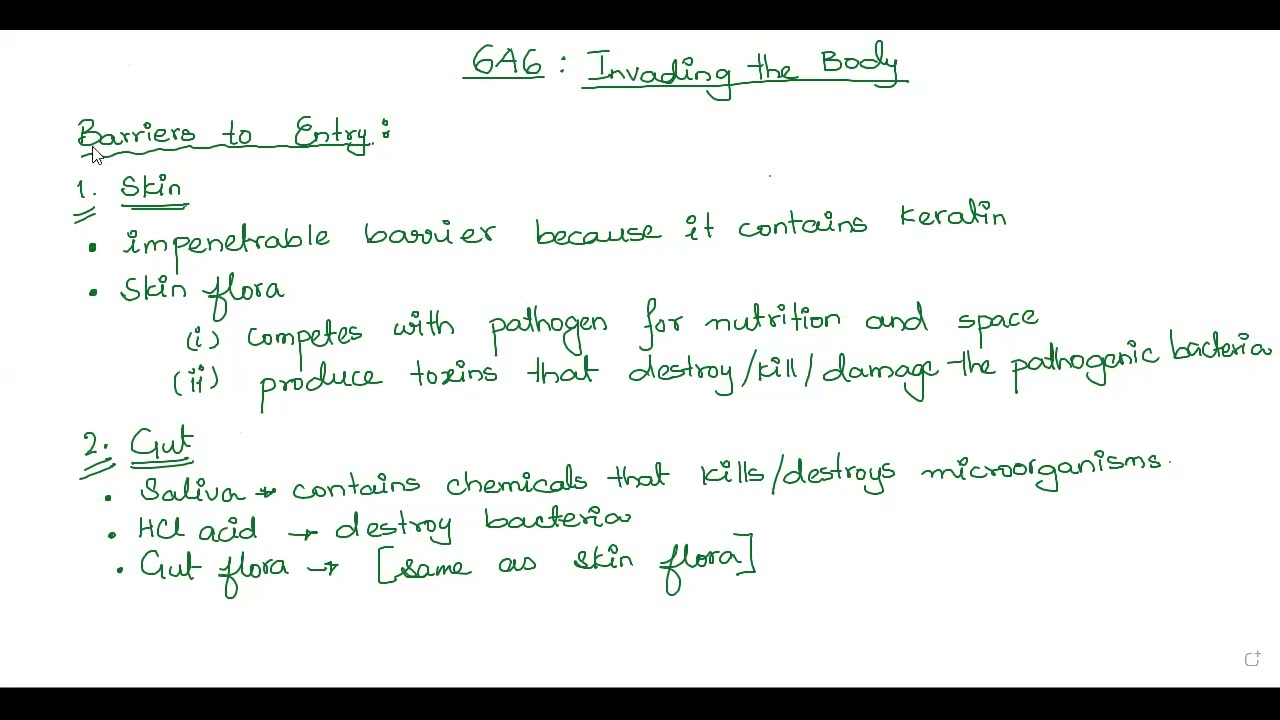 6A6 : Invading the Body
Barriers to Entry :
1. Skin
• impenetrable barrier because it contains keratin
• Skin flora
(i) competes with pathogen for nutrition and space
(ii) produce toxins that destroy/kill/damage the pathogenic bacteria
2. Gut
• Saliva → contains chemicals that kills/destroys microorganisms.
• HCl acid → destroy bacteria
• Gut flora → [same as skin flora]